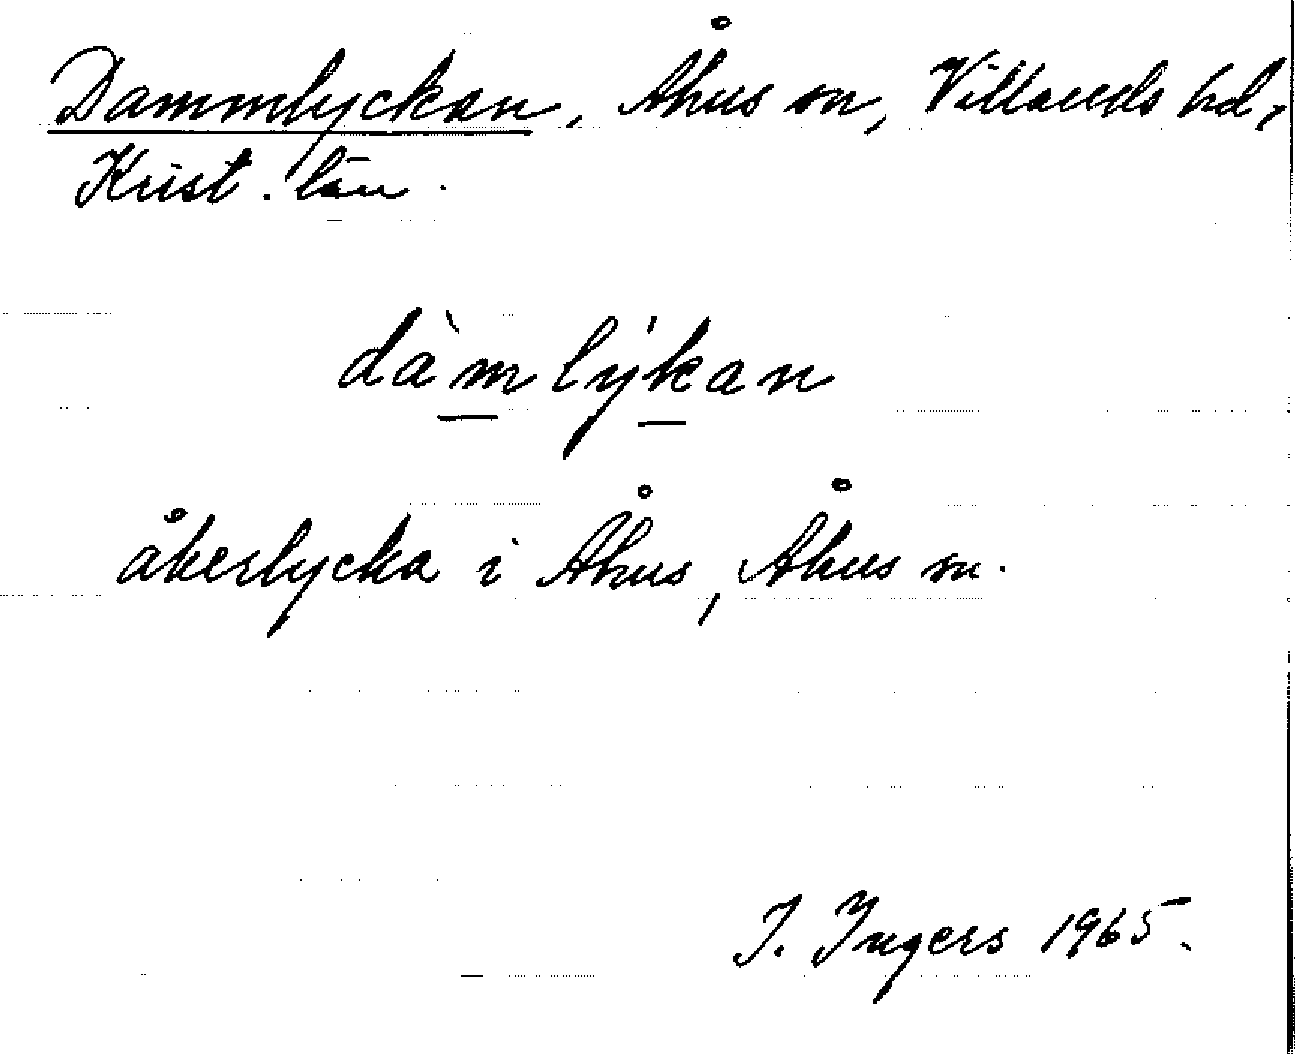 Dammlyckan, Åhus sn, Villands hd,
Krist. län.
dàmlýkan
åkerlycka i Åhus, Åhus sn.
I. Ingers 1965.